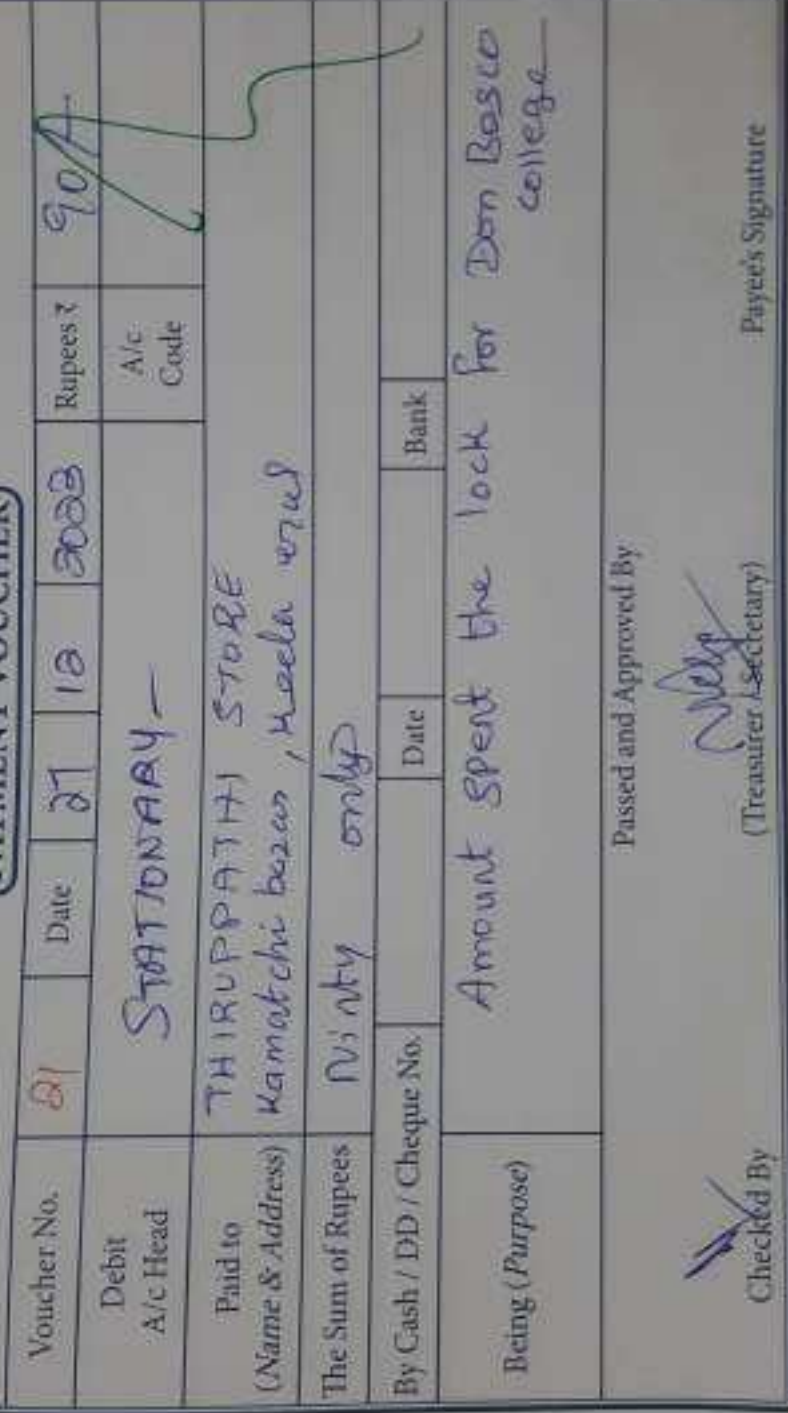 PAYMENT VOUCHER
Voucher No. 21 Date 27 12 2023 Rupees ₹ 90/-
Debit A/c Head STATIONARY - A/c Code
Paid to (Name & Address) THIRUPPATHI STORE
Kamatchi bazar,
The Sum of Rupees Ninty only
By Cash / DD / Cheque No. Date Bank
Being (Purpose) Amount spent the lock for Don Bosco
college
Passed and Approved By
Checked By (Treasurer / Secretary) Payee's Signature